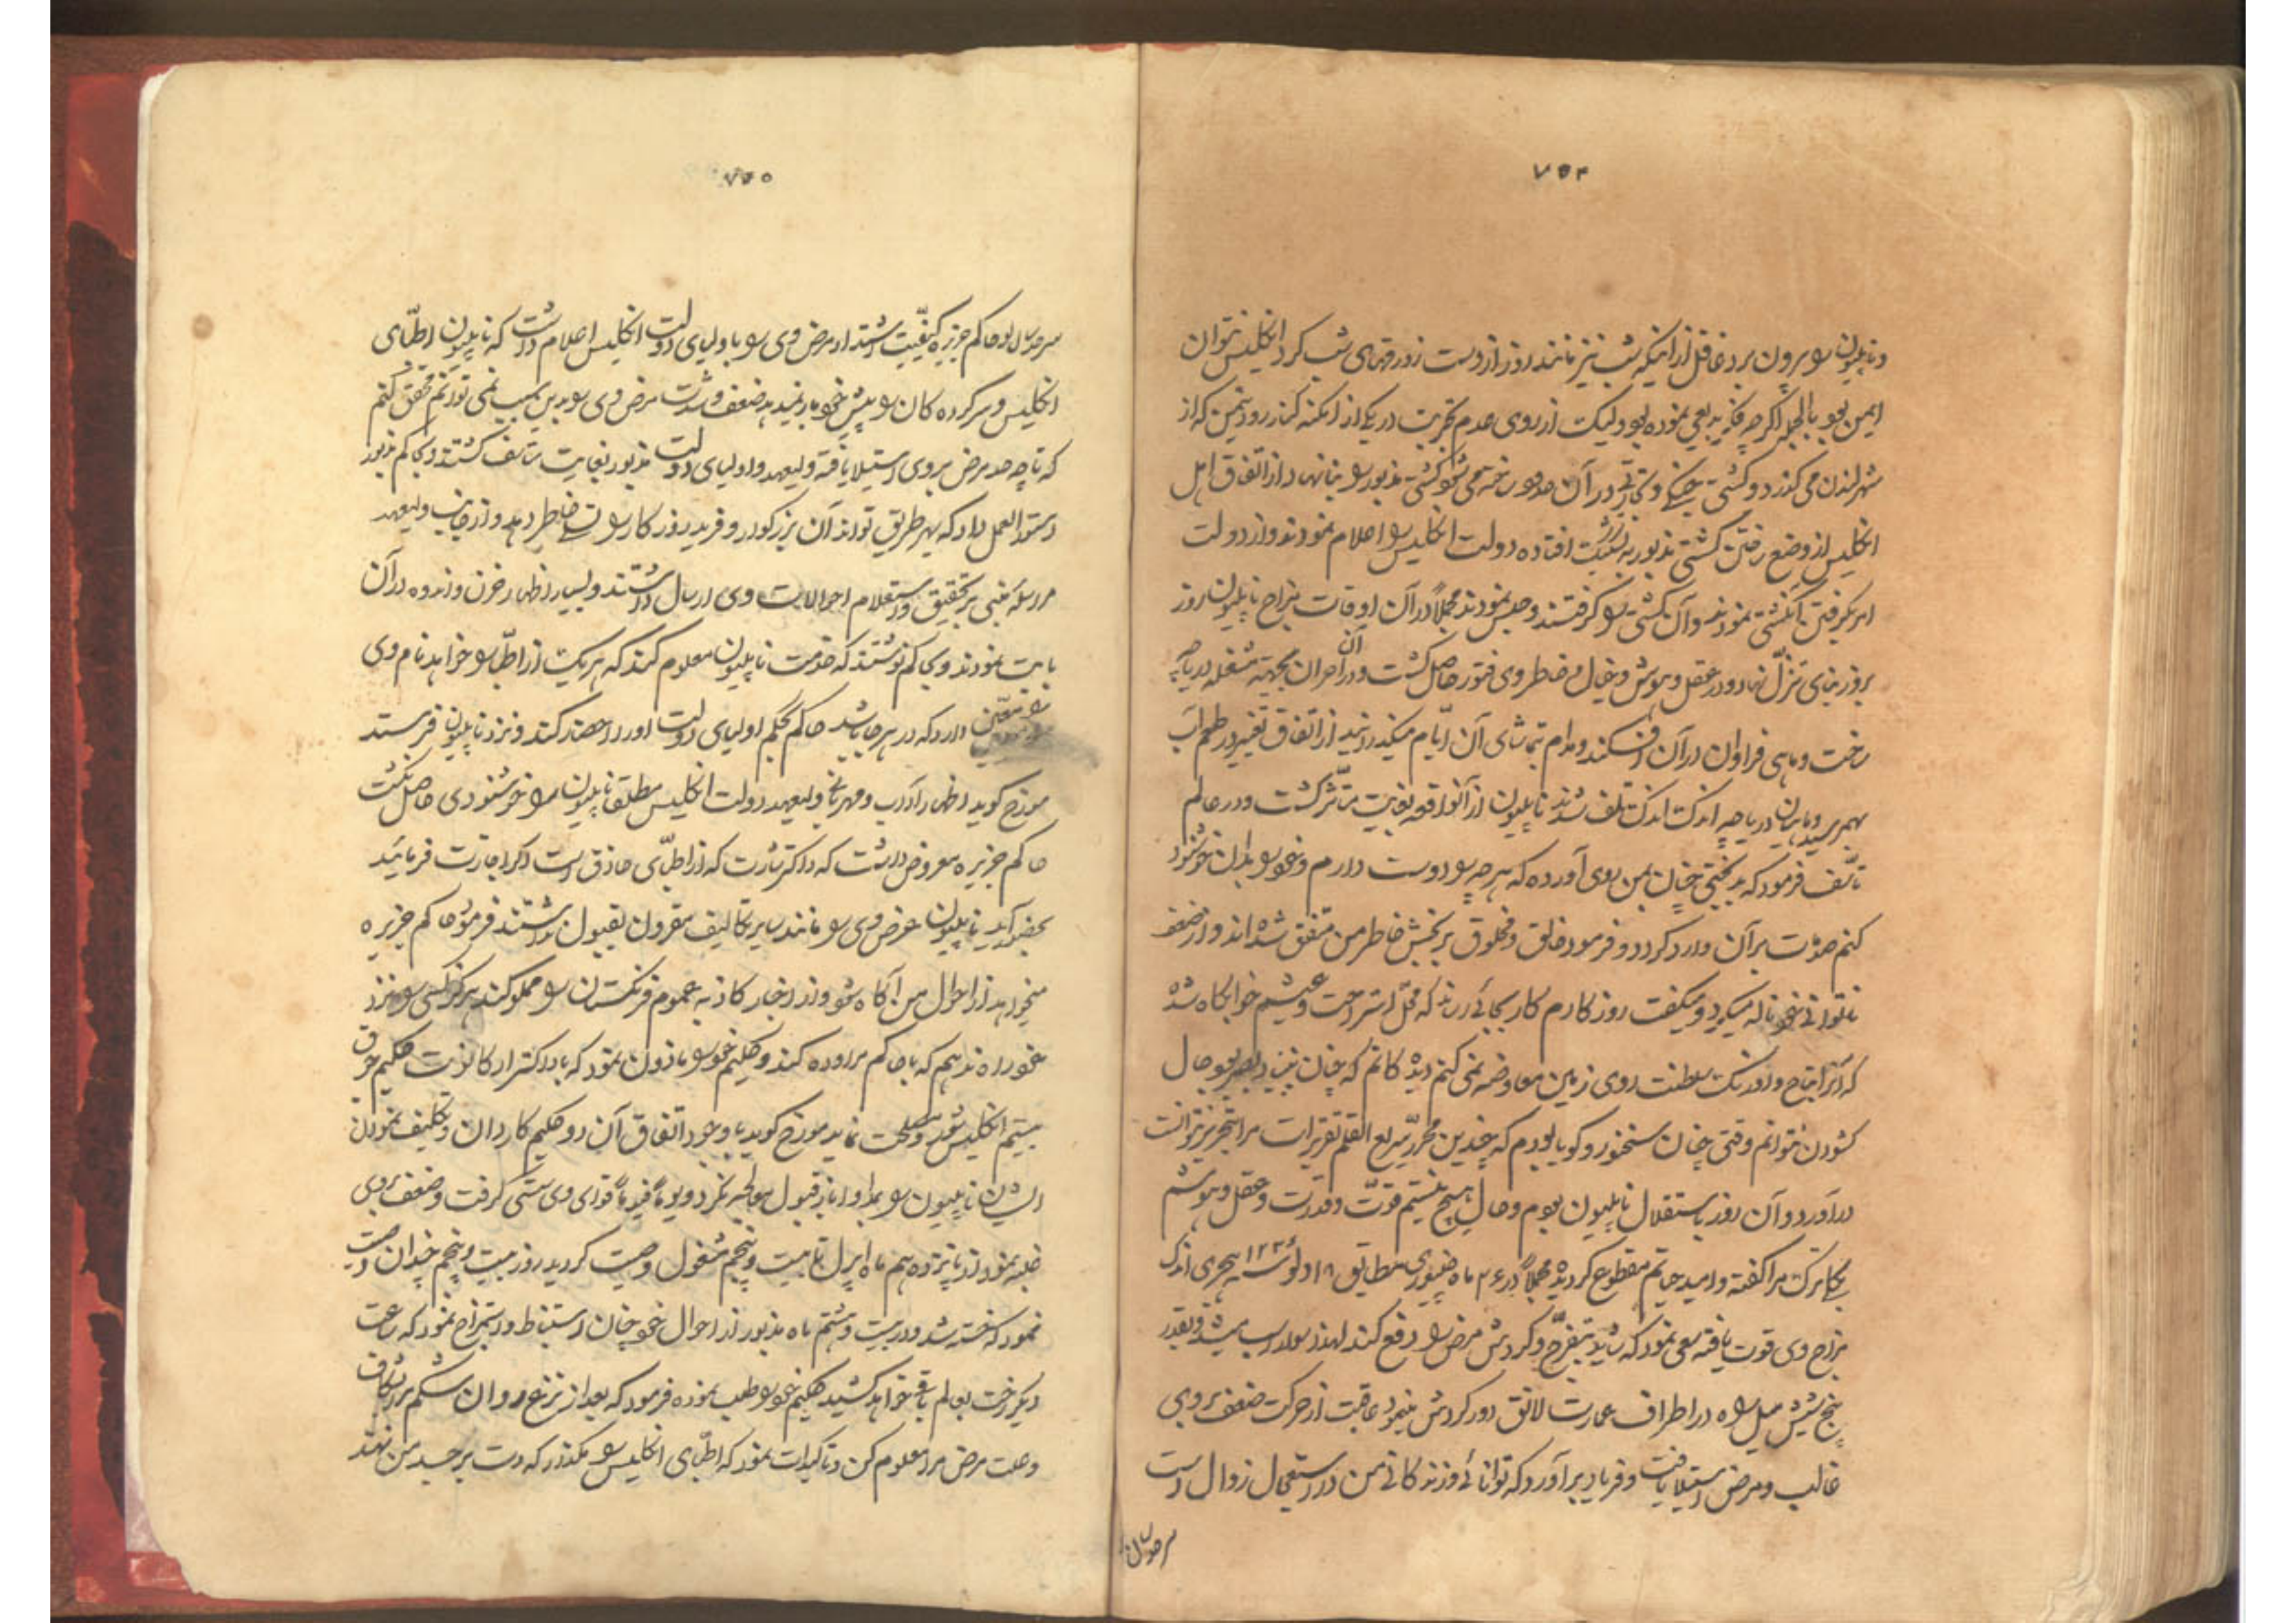 ۷۵۴
و ناپلیون را بیرون برد غافل از اینکه شب نیز مانند روز از دست زورقهای شب کرد انگلیس نتوان
ایمن بود بالجمله اگرچه فکر بدیعی نموده بود ولیکن از روی عدم تجربت در یکی از امکنه کنار رود تیمس که از
شهر لندن می گذرد و کشتی جنگی و تجارتی در آن حدود ساخته می شود کشتی مذبور را بنا نهاد از اتفاق اهل
انگلیس از وضع رفتن کشتی مذبور به تشکیک افتاده دولت انگلیس را اعلام نمودند و از دولت
امر بگرفتن آن کشتی نمودند و آن کشتی را گرفتند و حبس نمودند مجملاً در آن اوقات مزاج ناپلیون روز
بروز بنای تنزل نهاد و در عقل و هوش و خیال و خاطر وی فتور حاصل گشت و در آن احیان بجهة مشغله دریاچه
ساخت و ماهی فراوان در آن افکند و مدام بتماشای آن ایام میگذرانید از اتفاق تغییر در طعم آب
بهمرسید و ماهیان دریاچه اندک اندک تلف شدند ناپلیون از آن واقعه بغایت متأثر گشت و در عالم
تأسف فرمود که بدبختی چنان بمن روی آورده که هر چه را دوست دارم و خود را بدان خوشنود
کنم حادثات بر آن وارد گردد و فرمود خالق و مخلوق بر رنجش خاطر من متفق شده اند و از ضعف
ناتوانی خود ناله میکرد و میگفت روزگارم کار بجائی رساند که محل استراحت و عیشم خوابگاه شده
که آنرا بتاج و اورنگ سلطنت روی زمین معاوضه نمی کنم دیدگانم که چنان تیزبین بود حال
گشودن نتوانم وقتی چنان سخنور و گویا بودم که چندین محرر سریع القلم تقریرات مرا بتحریر نتوانست
درآورد و آن روز باستقلال ناپلیون بودم و حال هیچ نیستم قوت و قدرت و عقل و هوشم
بیکبار ترک مرا گفته و امید حیاتم مقطوع گردیده مجملاً در ۲۶ ماه جنیوری مطابق ۱۸ دلو سنه ۱۲۳ هجری اندک
مزاج وی قوت یافته سعی نمود که شاید بتفرج و گردش مرض را دفع کند لهذا سوار اسب میشد و بقدر
پنج شش میل راه در اطراف عمارت لانق دور گردش مینمود عاقبت از حرکت ضعف بر وی
غالب و مرض استیلا یافت و فریاد برآورد که توانائی و زندگانی من در استعجال زوال است
سرهدسن
۷۵۵
سرهدسن لو حاکم جزیره کیفیت اشتداد مرض وی را باولیای دولت انگلیس اعلام داشت که ناپلیون اطبای
انگلیس و سرکرده گان را پیش خود بار نمیدهد ضعف و شدت مرض وی را بدین سبب نمی توانم محقق کنم
که تا چه حد مرض بر وی استیلا یافته ولیعهد و اولیای دولت مذبور بغایت متأسف گشتند و بحاکم مذبور
دستورالعمل داد که بهر طریق تواند آن بزرگوار و فرید روزگار را تسلی خاطر دهد و از جانب ولیعهد
مراسله مبنی بر تحقیق و استعلام احوالات وی ارسال داشتند و بسیار اظهار حزن و اندوه در آن
بابت نمودند و بحاکم نوشتند که خدمت ناپلیون معلوم کند که هر یک از اطبا را خواهد نام وی
را معین دارد که در هر جا باشد حاکم بحکم اولیای دولت او را احضار کند و نزد ناپلیون فرستد
مورخ گوید اظهار آداب و مهربانی ولیعهد دولت انگلیس مطلقا ناپلیون را خوشنودی حاصل نگشت
حاکم جزیره معروض داشت که داکتر نارت که از اطبای حاذق است اگر اجازت فرمائید
بحضور آید ناپلیون عرض وی را مانند سایر تکالیف مقرون بقبول نداشتند فرمود حاکم جزیره
میخواهد از احوال من آگاه شود و از اخبار کاذبه عموم فرنگستان را مملو کند هرگز کسی را نزد
خود راه ندهم که با حاکم مراوده کند و حکیم خود را ماذون نمود که با داکتر ارکانزت حکیم فرق
بیستم انگلیس شور و مصلحت نماید مورخ گوید با وجود اتفاق آن دو حکیم کاردان و تکلیف نمودن
ایشان ناپلیون را بمداوا باز قبول معالجه نکرد و یوماً فیوماً قوای وی سستی گرفت و ضعف بر وی
غلبه نمود از پانزدهم ماه اپرل تا بیست و پنجم مشغول وصیت گردید روز بیست و پنجم چندان وصیت
نمود که خسته شد و در بیست و هشتم ماه مذبور از احوال خود چنان استنباط و استمزاج نمود که ساعت
دیگر رخت بعالم باقی خواهد کشید حکیم خود را طلب نموده فرمود که بعد از نزع روان شکم مرا بشکاف
و علت مرض مرا معلوم کن و تاکیدات نمود که اطبای انگلیس را مگذار که دست بر جسد من نهند